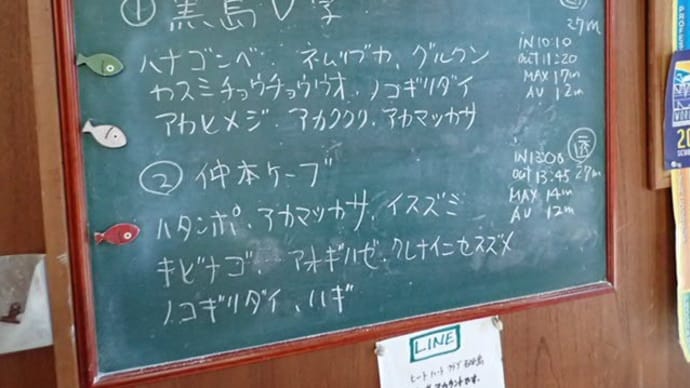 ① 黒島V字
27m
IN 10:10
OUT 11:20
MAX 17m
AV 12m
ハナゴンベ・ネムリブカ、グルクン
カスミチョウチョウウオ、ノコギリダイ
アカヒメジ、アカククリ、アカマッカサ
② 仲本ケーブ
IN 13:00
OUT 13:45 27m
MAX 14m
AV 12m
ハタンポ、アカマッカサ、イスズミ
キビナゴ、アオギハゼ、クレナイニセスズメ
ノコギリダイ、ハギ
LINE
ヒートハートクラブ石垣島
アカウントです。
PROFES
20